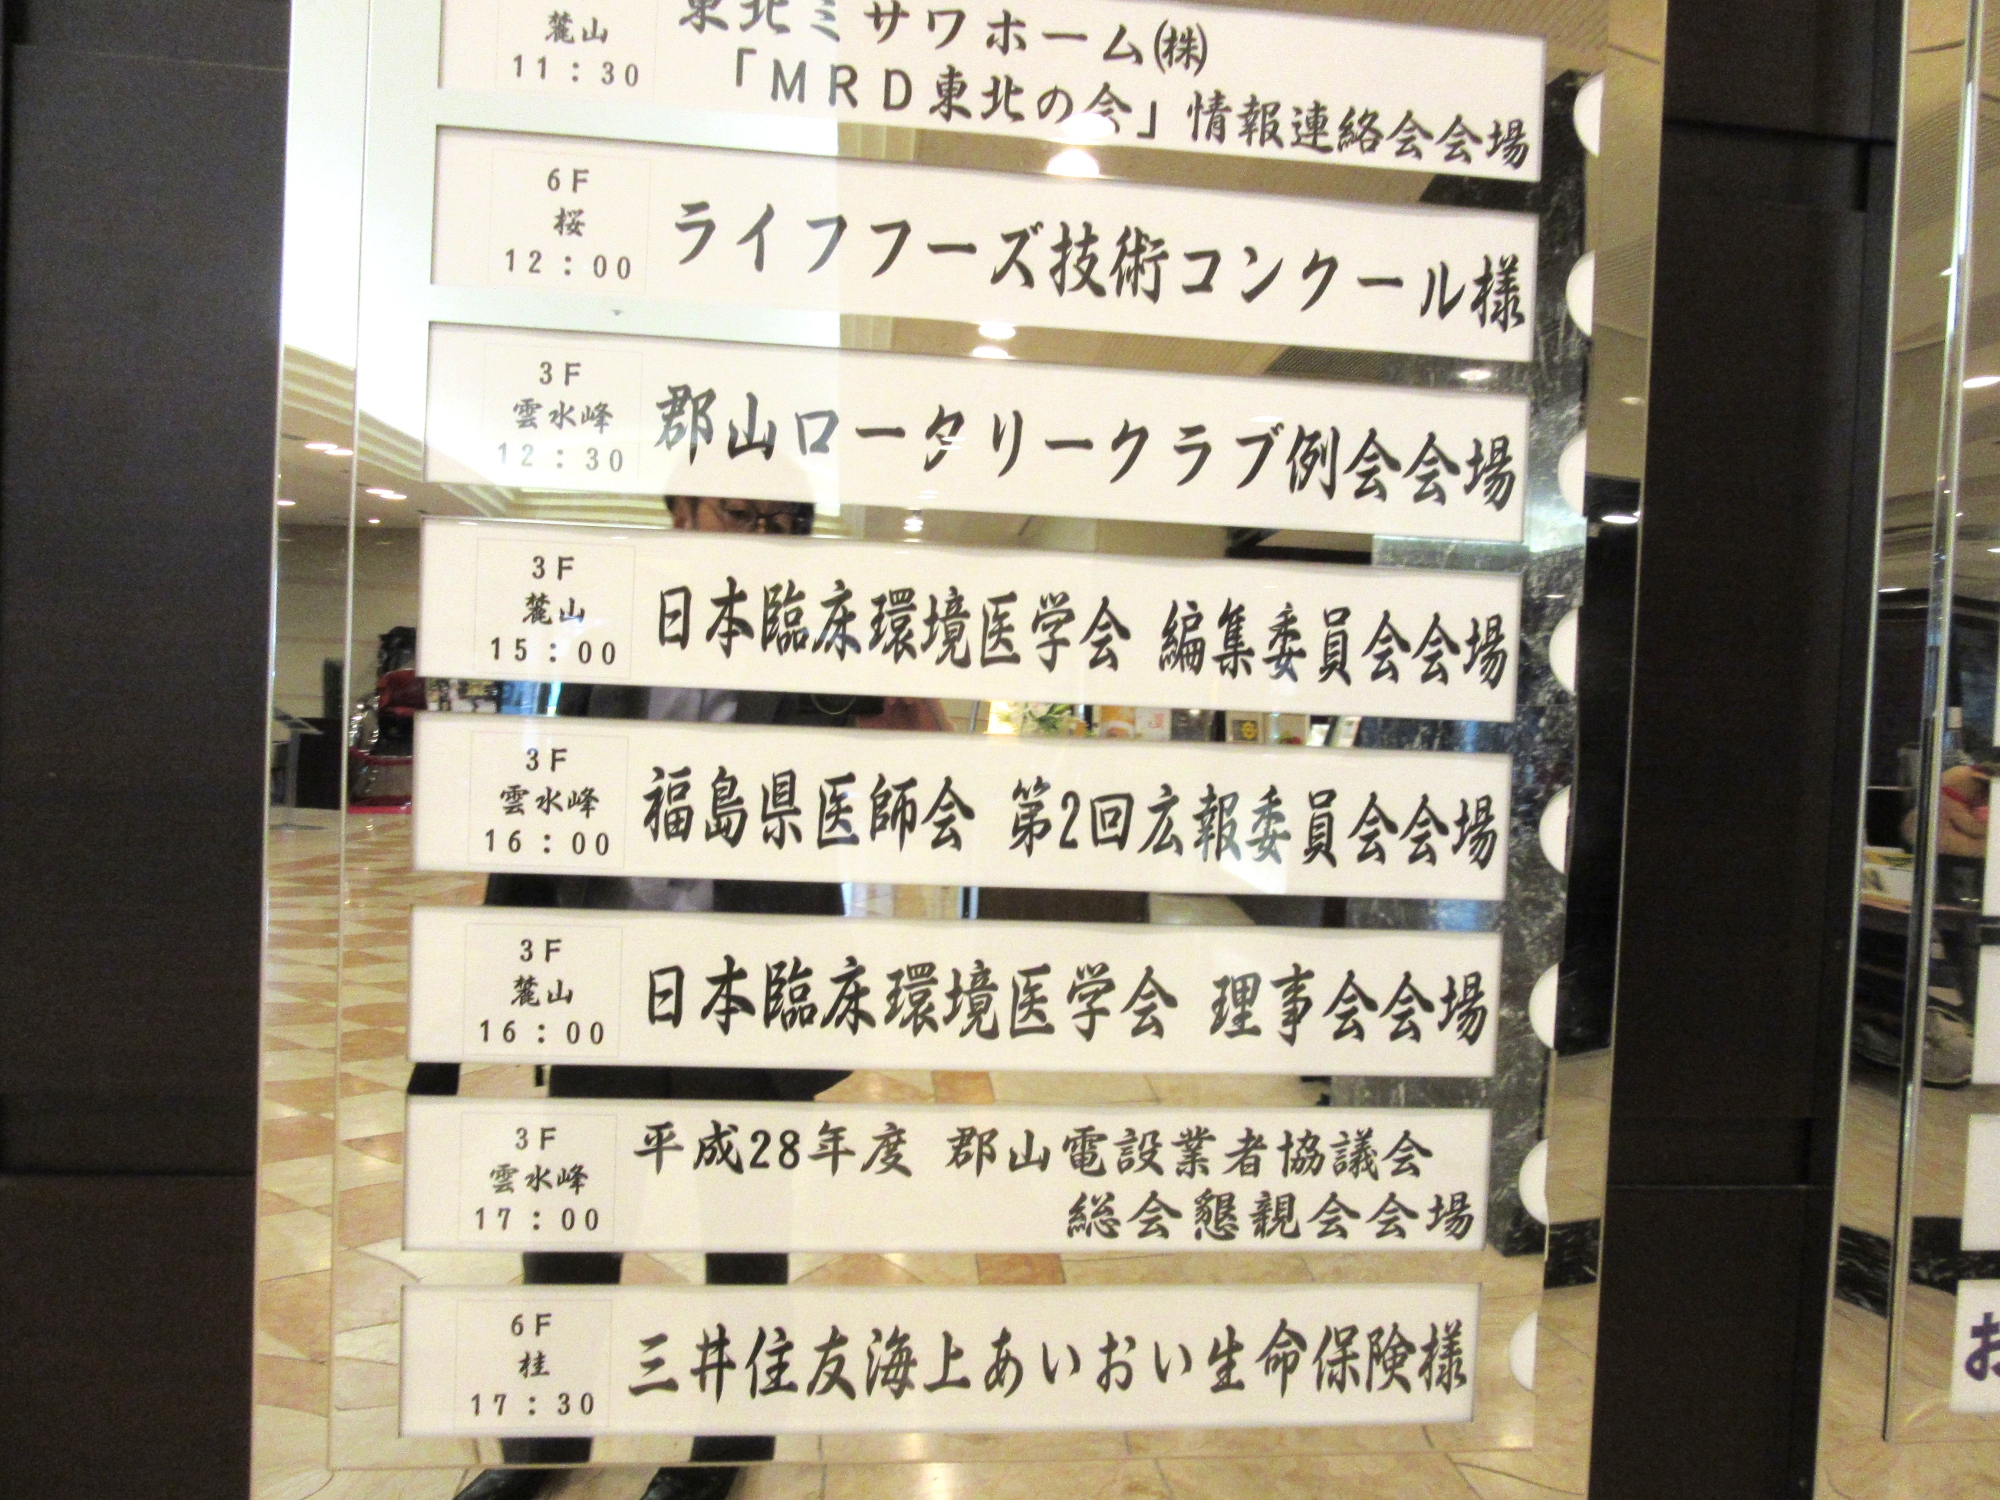 麓山
11:30
東北ミサワホーム㈱
「MRD東北の会」情報連絡会会場
6F
桜
12:00
ライフフーズ技術コンクール様
3F
雲水峰
12:30
郡山ロータリークラブ例会会場
3F
麓山
15:00
日本臨床環境医学会 編集委員会会場
3F
雲水峰
16:00
福島県医師会 第2回広報委員会会場
3F
麓山
16:00
日本臨床環境医学会 理事会会場
3F
雲水峰
17:00
平成28年度 郡山電設業者協議会
総会懇親会会場
6F
桂
17:30
三井住友海上あいおい生命保険様
お